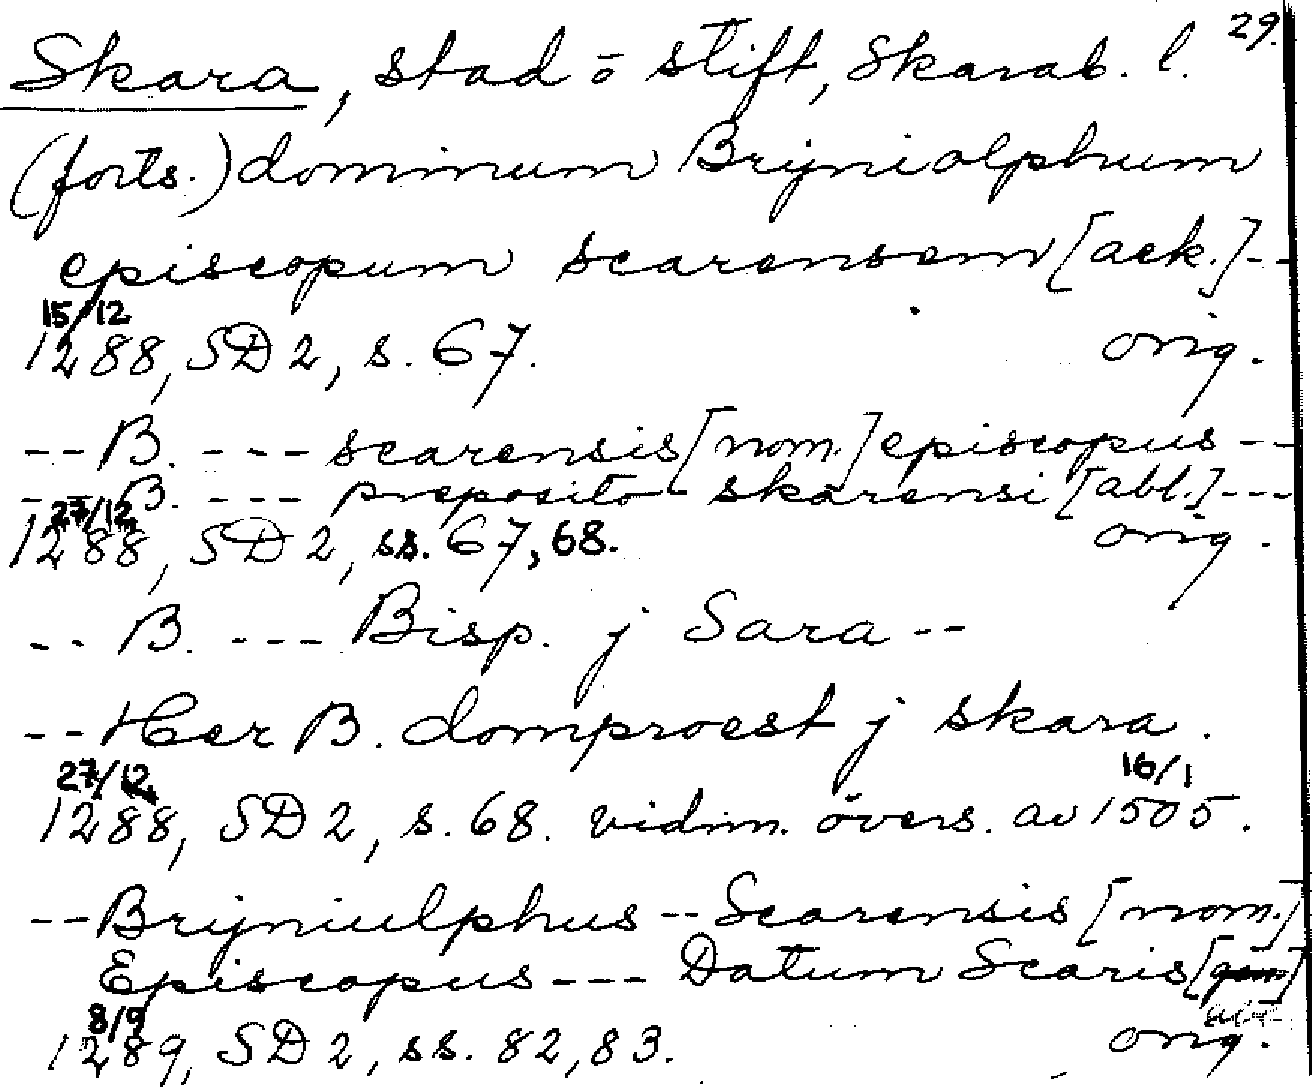 29.
Skara, stad o stift, Skarab. l.
(forts.) dominum Brijnialphum
episcopum scarensem [ack.]--
15/12
1288, SD 2, s. 67. orig.
-- B. --- scarensis [nom.] episcopus --
-- B. --- preposito skarensi [abl.] ---
27/12
1288, SD 2, ss. 67, 68. orig.
-- B. --- Bisp. j Sara --
-- Herr B. domproest j skara.
27/12 16/1
1288, SD 2, s. 68. vidim. övers. av 1505.
-- Brijniulphus -- Scarensis [nom.]
Episcopus --- Datum Scaris [gen.]
8/9
1289, SD 2, ss. 82, 83. orig.